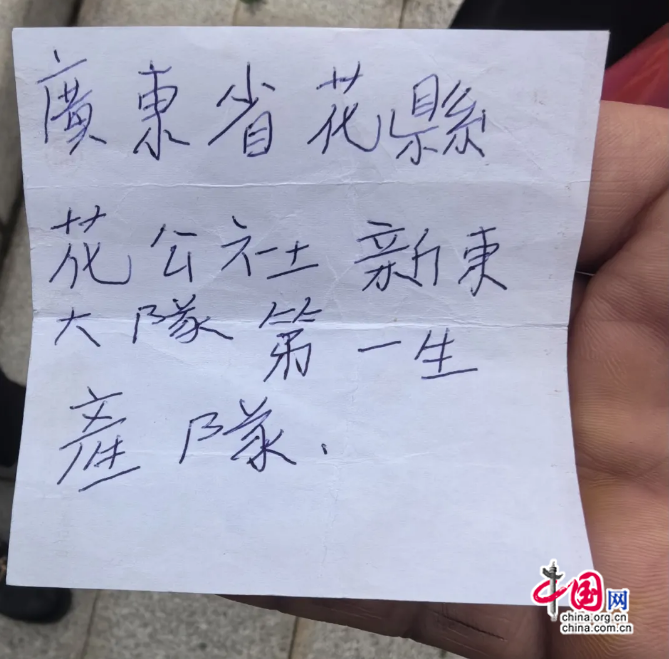 廣東省花縣
花公社新東
大隊第一生
產隊.
中国网
china.org.cn
china.com.cn